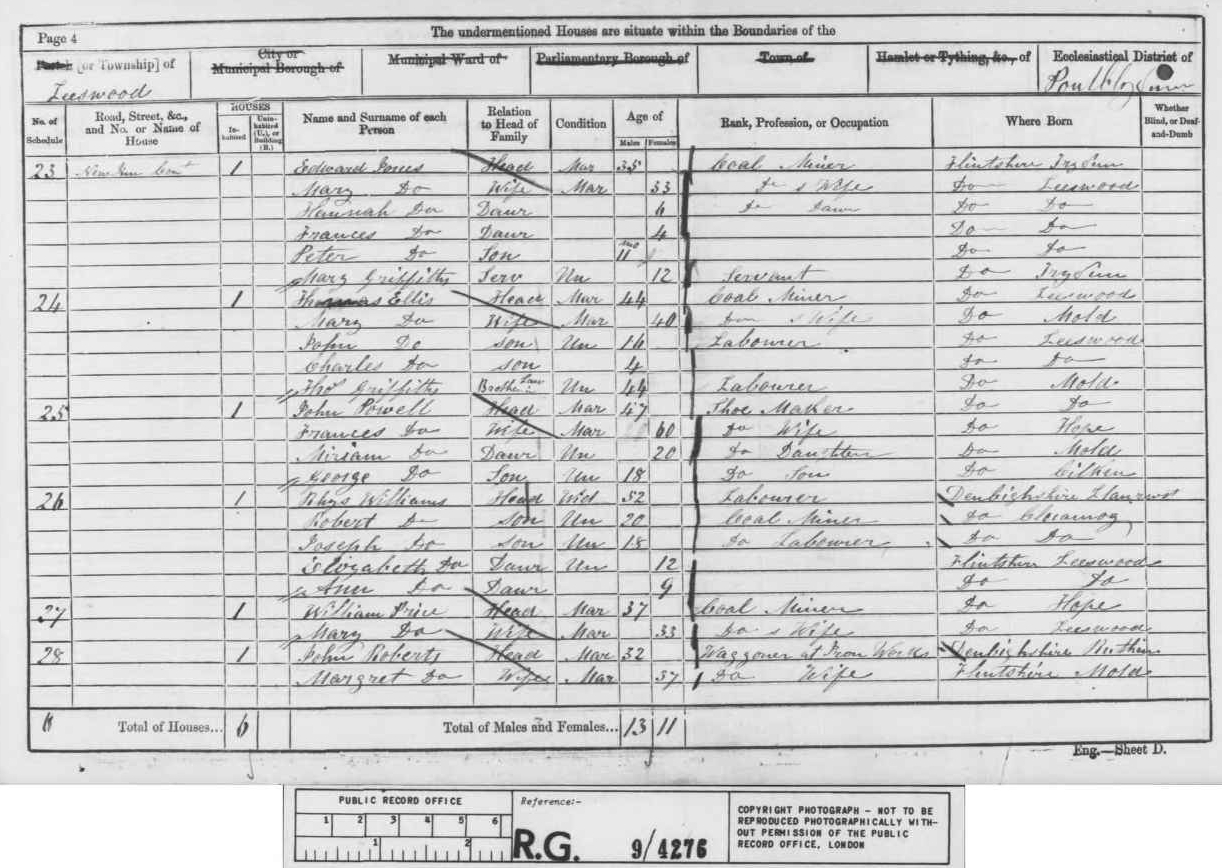 Page 4
The undermentioned Houses are situate within the Boundaries of the
Parish [or Township] of
City or Municipal Borough of
Municipal Ward of
Parliamentary Borough of
Town of
Hamlet or Tything, &c., of
Ecclesiastical District of
Leeswood
No. of Schedule
Road, Street, &c., and No. or Name of House
HOUSES
In-habited
Unin-habited (U.), or Building (B.)
Name and Surname of each Person
Relation to Head of Family
Condition
Age of
Males
Females
Rank, Profession, or Occupation
Where Born
Whether Blind, or Deaf-and-Dumb
23 1 Edward Jones Head Mar 35 Coal Miner Flintshire Tryddin
Mary Do Wife Mar 33 Do s Wife Do Leeswood
Hannah Do Daur 6 Do Daur Do Do
Frances Do Daur 4 Do Do
Peter Do Son 11 Mo Do Do
Mary Griffiths Serv Un 12 Servant Do Tryddin
24 1 Thomas Ellis Head Mar 44 Coal Miner Do Leeswood
Mary Do Wife Mar 40 Do s Wife Do Mold
John Do Son Un 16 Labourer Do Leeswood
Charles Do Son 4 Do Do
Thos Griffiths Brothe Law Un 44 Labourer Do Mold
25 1 John Powell Head Mar 47 Shoe Maker Do Do
Frances Do Wife Mar 60 Do Wife Do Hope
Miriam Do Daur Un 20 Do Daughter Do Mold
George Do Son Un 18 Do Son Do Cilken
26 1 Rhys Williams Head Wid 52 Labourer Denbighshire Llanrwst
Robert Do Son Un 20 Coal Miner Do
Joseph Do Son Un 18 Do Labourer Do Do
Elizabeth Do Daur Un 12 Flintshire Leeswood
Ann Do Daur 9 Do Do
27 1 William Price Head Mar 37 Coal Miner Do Hope
Mary Do Wife Mar 33 Do s Wife Do Leeswood
28 1 John Roberts Head Mar 32 Waggoner at Iron Works Denbighshire Ruthin
Margret Do Wife Mar 37 Do Wife Flintshire Mold
6 Total of Houses... 6 Total of Males and Females... 13 11
Eng.—Sheet D.
PUBLIC RECORD OFFICE
1 2 3 4 5 6
1 2
Reference:-
R.G. 9/4276
COPYRIGHT PHOTOGRAPH - NOT TO BE
REPRODUCED PHOTOGRAPHICALLY WITH-
OUT PERMISSION OF THE PUBLIC
RECORD OFFICE, LONDON